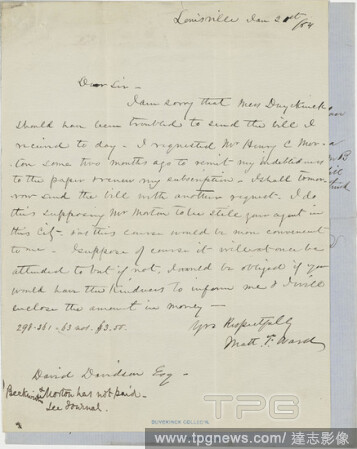 Louisville Jan 21st/54
Dear Sir -
I am sorry that Mess Duyckinck
should have been troubled to send the bill I
recieved to day - I requested Mr Henry C Mor-
ton some two months ago to remit my indebtedness
to the paper & renew my subscription - I shall tomor-
row send the bill with another request - I do
this supposing Mr Morton to be still your agent in
this City - as this course would be more convenient
to me - I suppose of course it will at once be
attended to but if not, I would be obliged if you
would have the kindness to inform me & I will
enclose the amount in money -
Yrs Respectfully
Matt. F. Ward
298-361-63 nos. $3.50.
David Davidson Esq -
Morton has not paid -
See Journal.
DUYCKINCK COLLECTION.
TPG
www.tpgnews.com/達志影像